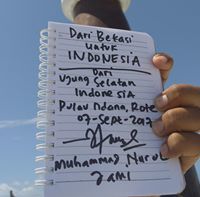 Dari Bekasi
untuk
INDONESIA
Dari
Ujung Selatan
Indonesia
Pulau Ndana, Rote
07-Sept-2017
Muhammad Nurul
Zami